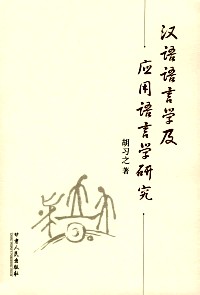 汉语语言学及
应用语言学研究
胡习之 著
甘肃人民出版社